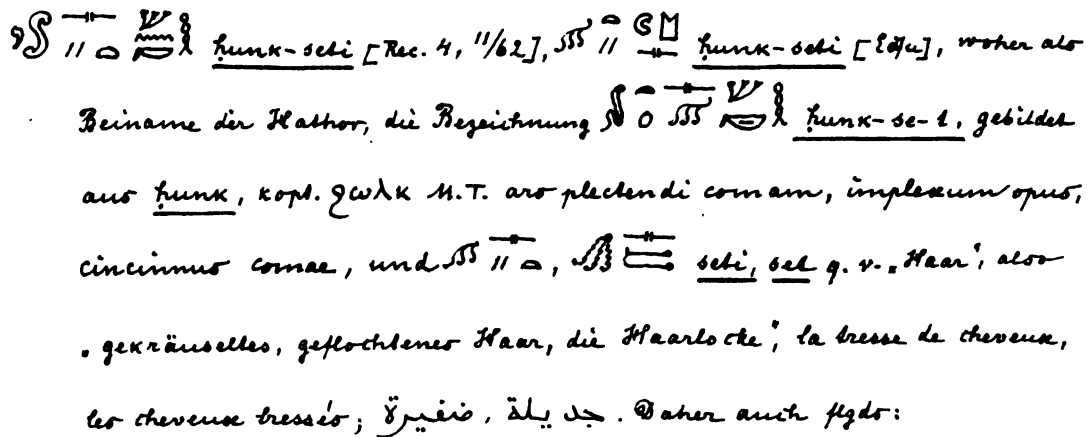 ḥunk-seti [Rec. 4, 11/62], ḥunk-seti [Edfu], woher als
Beiname der Hathor, die Bezeichnung ḥunk-se-t, gebildet
aus ḥunk, kopt. ϩωλκ M.T. ars plectendi comam, implexum opus,
cincinnus comae, und seti, set q. v. „Haar“, also
„gekräuseltes, geflochtenes Haar, die Haarlocke“, la tresse de cheveux,
les cheveux tressés; ضفيرة, جديلة. Daher auch flgds: